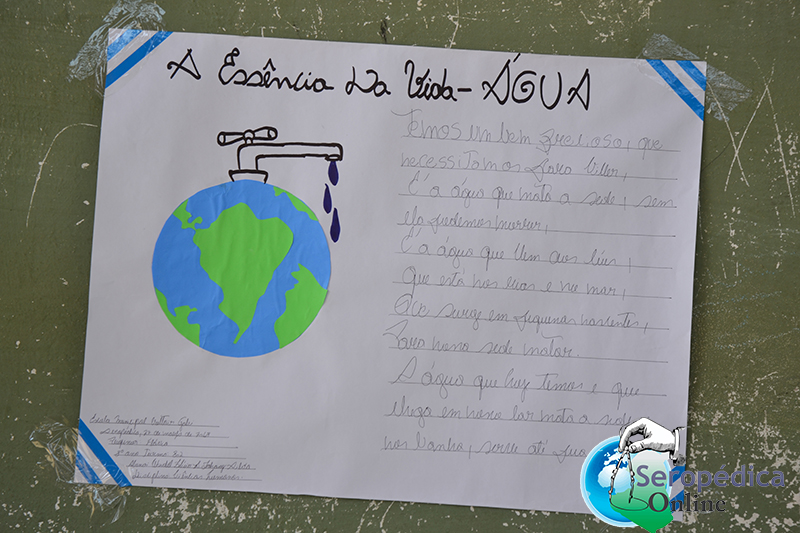 A Essência Da Vida - ÁGUA
Temos um bem precioso, que
necessitamos para viver,
É a água que mata a sede, sem
ela podemos morrer,
É a água que vem dos céus,
Que está nos rios e no mar,
Que surge em pequenas nascentes,
Para nossa sede matar.
A água que hoje temos e que
chega em nosso lar mata a sede
nos banha, serve até
Seropédica
Online
Escola Municipal
Seropédica, de março de